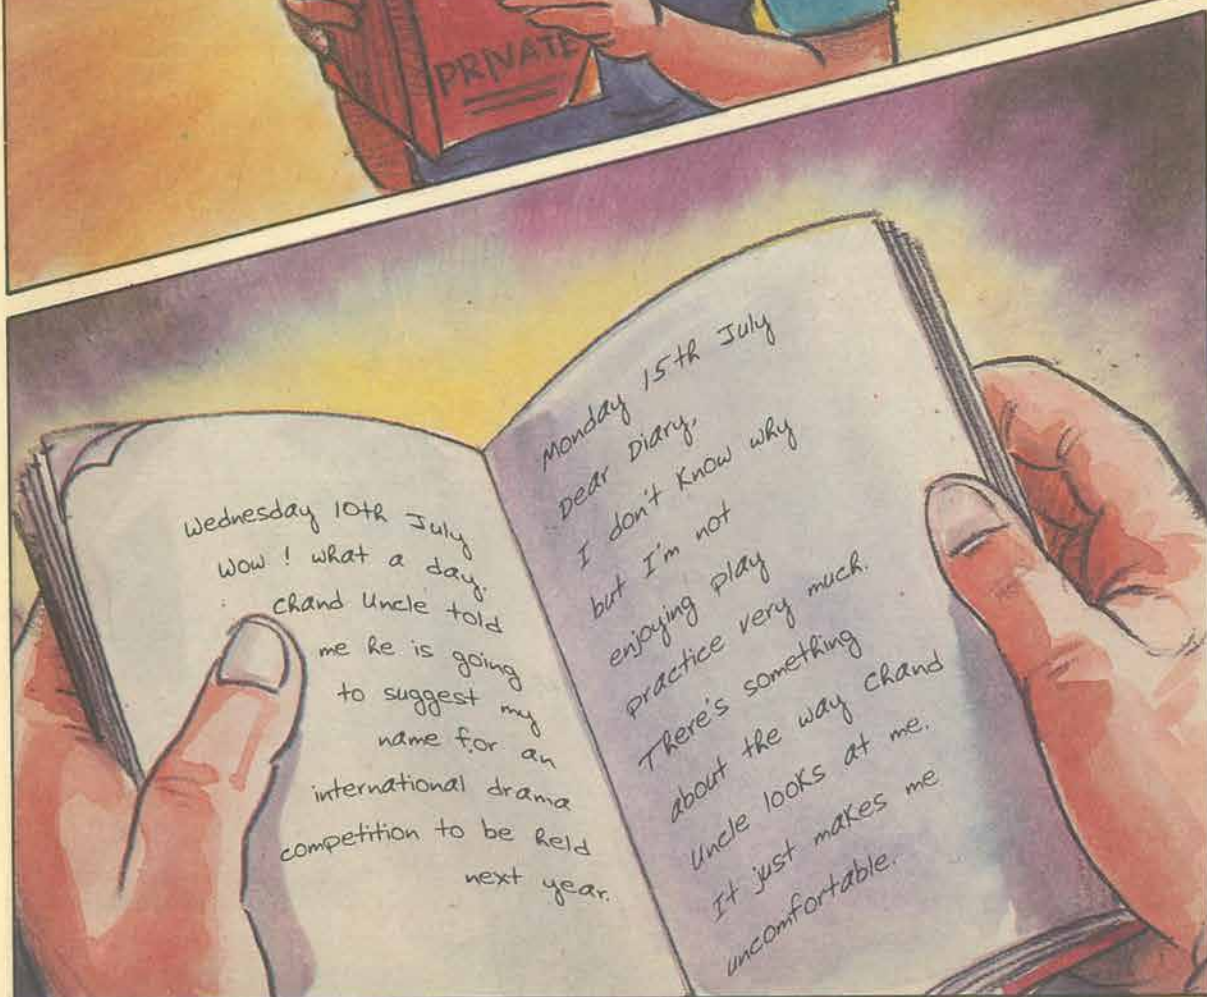 PRIVATE
Wednesday 10th July
Wow! what a day.
Chand Uncle told
me he is going
to suggest my
name for an
international drama
competition to be held
next year.
Monday 15th July
Dear Diary,
I don't know why
but I'm not
enjoying play
practice very much.
There's something
about the way Chand
Uncle looks at me.
It just makes me
uncomfortable.